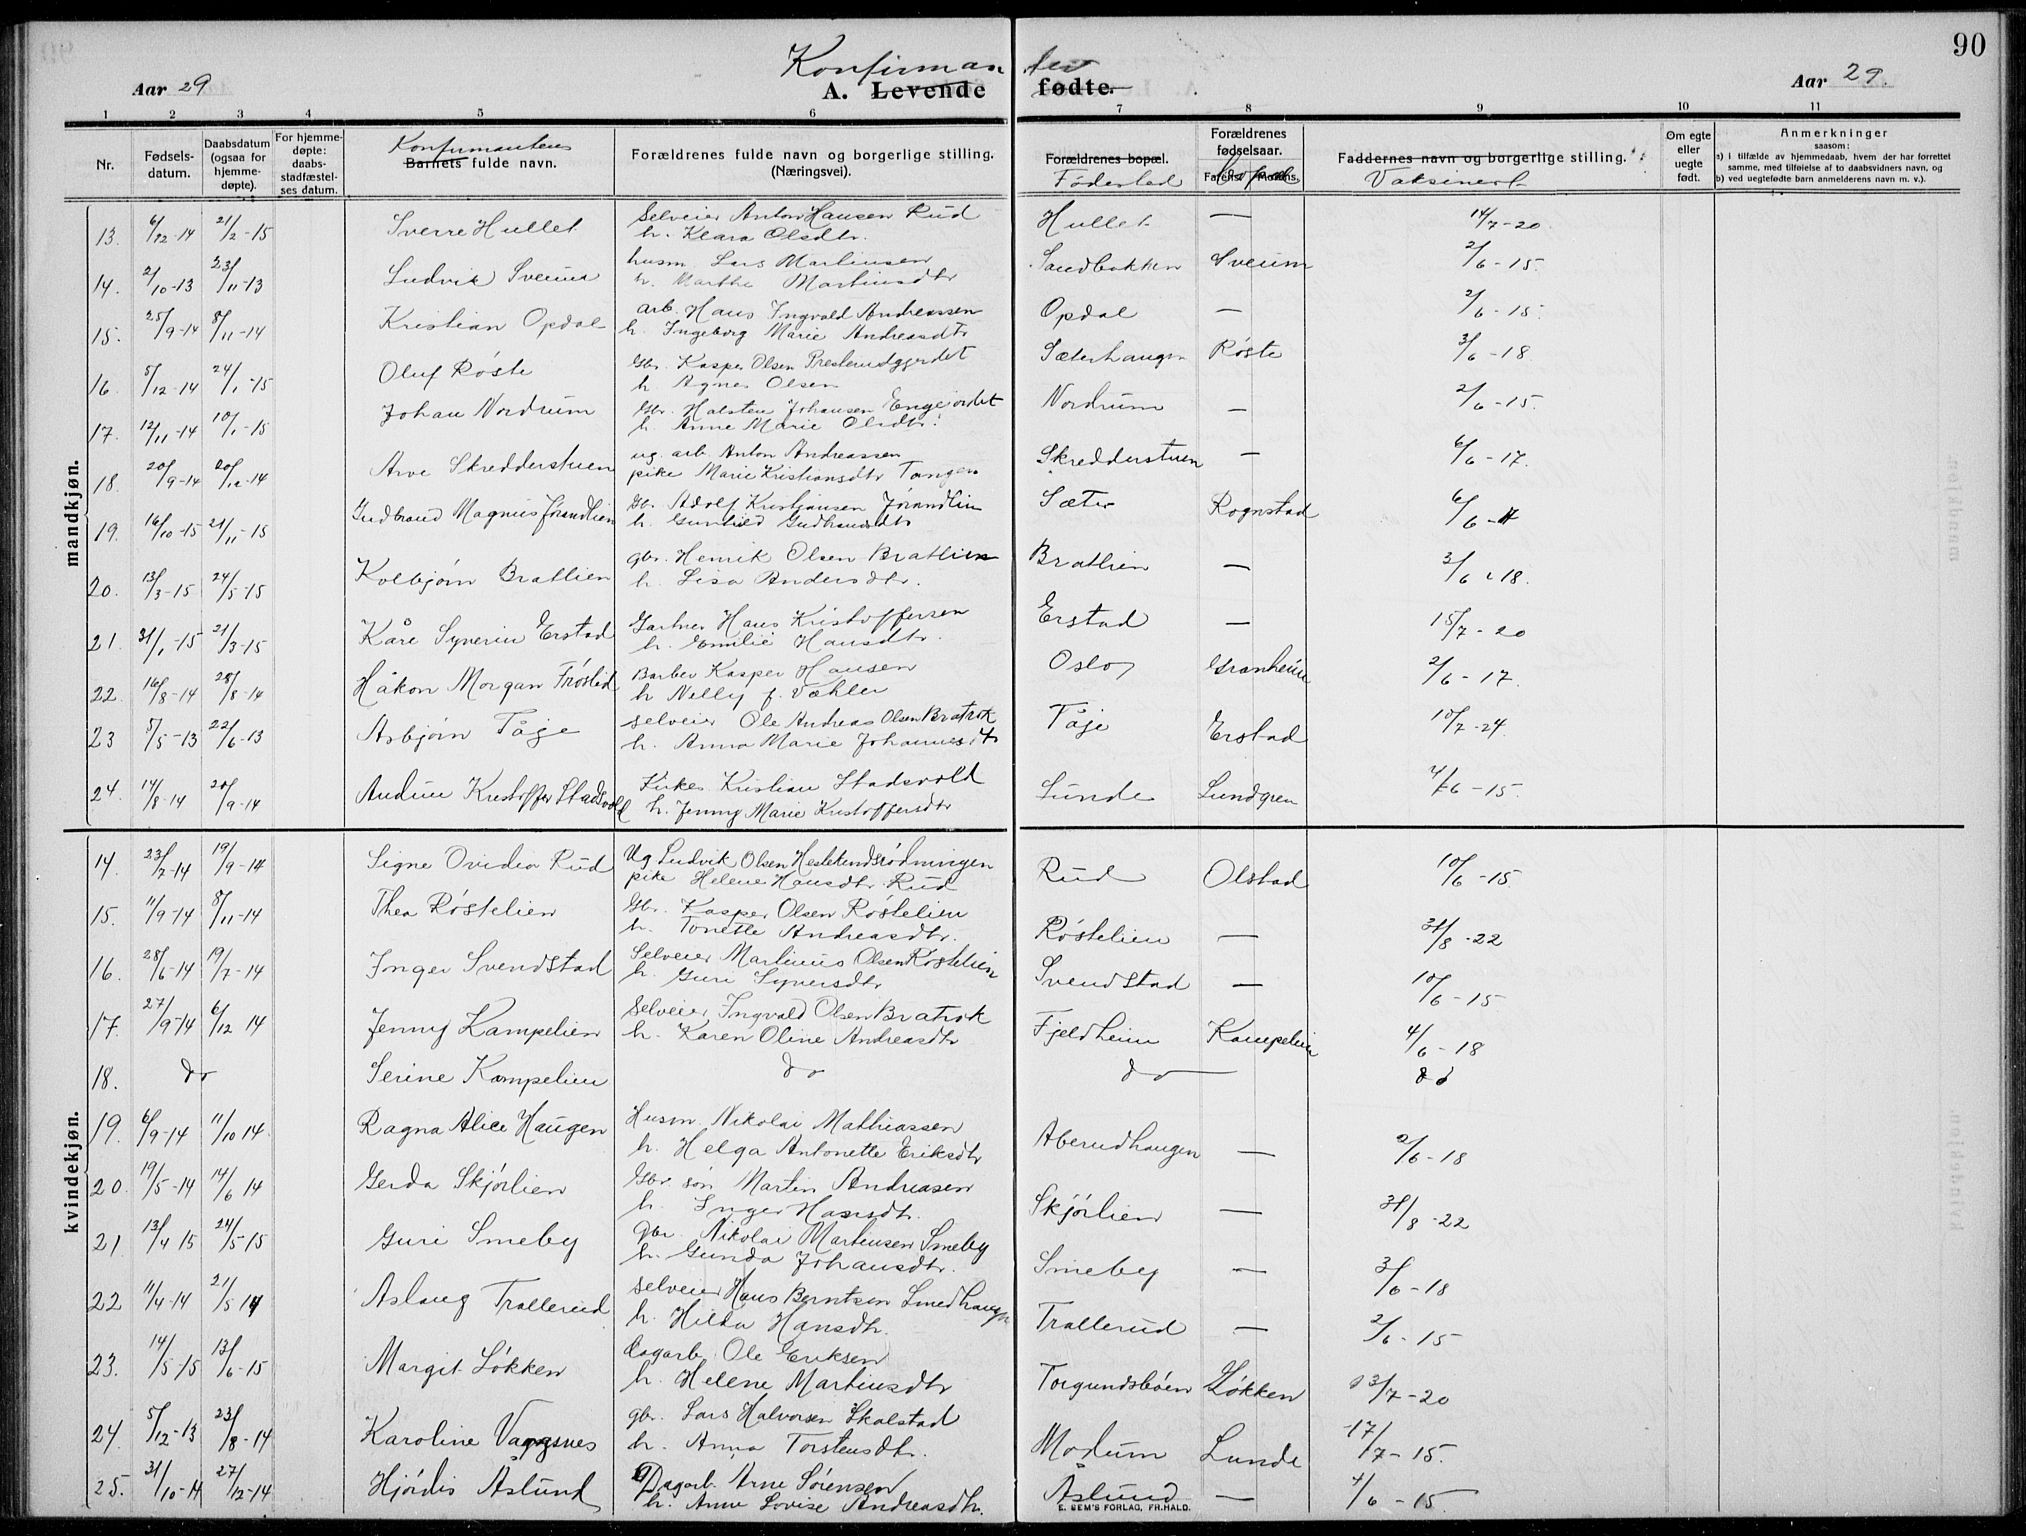 Konfirman ter
90
Aar 29
A. Levende fødte.
Aar 29.
1 2 3 4 5 6 7 8 9 10 11
Nr.
Fødsels-datum.
Daabsdatum (ogsaa for hjemme-døpte).
For hjemme-døpte: daabs-stadfæstel-ses datum.
Konfirmantens
Barnets fulde navn.
Forældrenes fulde navn og borgerlige stilling.
(Næringsvei).
Forældrenes bopæl.
Fødested
Forældrenes fødselsaar.
Farens. Morens.
Bopæl
Faddernes navn og borgerlige stilling.
Vaksinert
Om egte eller uegte født.
Anmerkninger
saasom:
a) i tilfælde av hjemmedaab, hvem der har forrettet samme, med tilføielse af to daabsvidners navn, og
b) ved uegtefødte barn anmelderens navn m. v.).
mandkjøn.
13. 6/12-14 21/2-15 Sverre Hullet Selveier Anton Hansen Rud Hullet — 14/7-20
h. Klara Olsdtr.
14. 2/10-13 23/11-13 Ludvik Sveum husm. Lars Martinsen Sandbakken Sveum 2/6-15.
h. Marthe Martinsdtr
15. 25/9-14 8/11-14 Kristian Opdal arb. Hans Ingvald Andreassen Opdal — 2/6-15.
h. Ingeborg Marie Andreasdtr
16. 5/12-14 24/1-15 Oluf Røste Gbr. Kasper Olsen Presterudgjerdet Sæterhaugen Røste 3/6-18.
h Agnes Olsen
17. 12/11-14 10/1-15 Johan Nordrum Gbr. Halsten Johansen Engejordet Nordrum — 2/6-15.
h. Anne Marie Olsdtr.
18. 20/9-14 20/12-14 Arve Skredderstuen ug. arb. Anton Andreassen Skredderstuen — 6/6-17.
pike Marie Kristiansdtr Tangen
19. 16/10-15 21/11-15 Gudbrand Magnus Jørandlien Gbr. Adolf Kristjansen Jørandlin Sæter Rognstad 6/6-17
h. Gunhild Gudbransdtr
20. 13/3-15 24/5-15 Kolbjørn Bratlien gbr. Henrik Olsen Bratlien Bratlien — 3/6-18.
h. Lisa Andersdtr.
21. 31/1-15 21/3-15 Kåre Synerin Erstad Gartner Hans Kristoffersen Erstad — 15/7-20
h. Emilie Hansdtr.
22. 16/8-14 28/8-14 Håkon Morgan Frøslid Barber Kasper Hansen Oslo Granheim 2/6-17.
h Nelly f. Væhler
23 5/5-13 22/6-13 Asbjørn Tåje selveier Ole Andreas Olsen Bratrok Tåje Erstad 10/7-24.
h. Anna Marie Johannesdtr
24. 14/8-14 20/9-14 Audun Kristoffer Stadsvold Kirkes. Kristian Stadsvold Lunde Lundgren 4/6-15.
h. Jenny Marie Kristoffersdtr
kvindekjøn.
14. 23/7-14 19/9-14 Signe Ovidia Rud Ug. Ludvik Olsen Heslekindsrødningen Rud Olstad 10/6-15.
pike Helene Hansdtr. Rud
15. 11/9-14 8/11-14 Thea Røstelien Gbr. Kasper Olsen Røstelien Røstelien — 31/8-22
h. Tonette Andreasdtr.
16. 28/6-14 19/7-14 Inger Svendstad Selveier Martinus Olsen Røstelien Svendstad — 10/6-15
h. Guri Synersdtr
17. 27/9-14 6/12 14 Jenny Kampelien Selveier Ingvald Olsen Bratrok Fjeldheim Kampelien 4/6-18
h. Karen Oline Andreasdtr
18. do Serine Kampelien do do — do
19. 6/9-14 11/10 14 Ragna Alice Haugen Husm. Nikolai Mathiassen Aberudhaugen — 2/6-18
h. Helga Antonette Eriksdtr
20. 19/5-14 14/6 14 Gerda Skjørlien Gbr. søn Martin Andreasen Skjørlien — 31/8-22
h. Inger Hansdtr.
21 13/4 15 24/5-15 Guri Smeby gbr. Nikolai Martinsen Smeby Smeby — 3/6-18
h. Gunda Johansdtr.
22 11/4-14 21/5 14 Aslaug Trallerud selveier Hans Berntsen Smedhaugen Trallerud — 2/6-15
h. Hilda Hansdtr.
23. 14/5-15 13/6-15 Margit Løkken Dagarb. Ole Eriksen Torgundsbøen Løkken 13/7-20
h. Helene Martinsdtr
24. 5/12-13 23/8-14 Karoline Vagsnes gbr. Lars Halvorsen Skalstad Modum Lunde 17/7-15.
h. Anna Torstensdtr.
25. 31/10-14 27/12-14 Hjørdis Åslund Dagarb. Arne Sørensen Åslund — 4/6-15.
h. Anne Lovise Andreasdtr.
E. SEM'S FORLAG, FR.HALD.